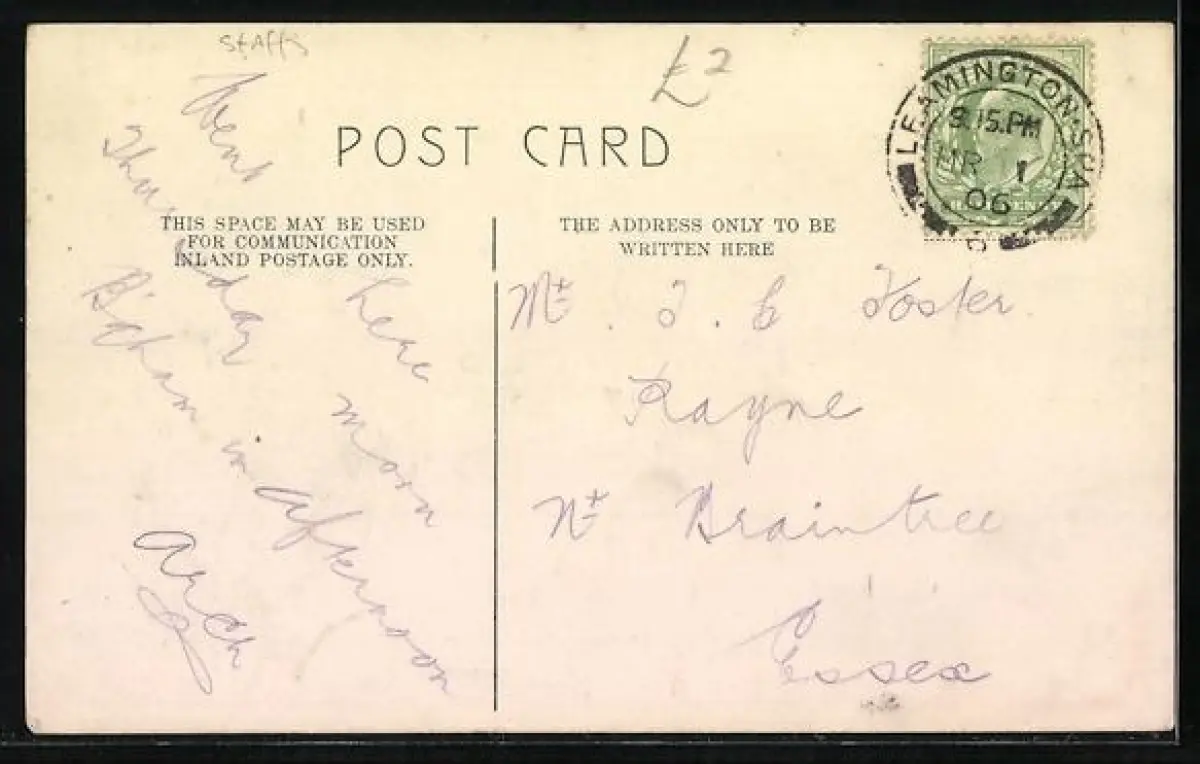 Staffs
£2
POST CARD
LEAMINGTON-SPA
9.15.PM
MR 1
06
THIS SPACE MAY BE USED
FOR COMMUNICATION
INLAND POSTAGE ONLY.
THE ADDRESS ONLY TO BE
WRITTEN HERE
Went here
Thursday morn
B'ham in afternoon
Arch
Mr. J. C Foster
Rayne
Nr Braintree
Essex